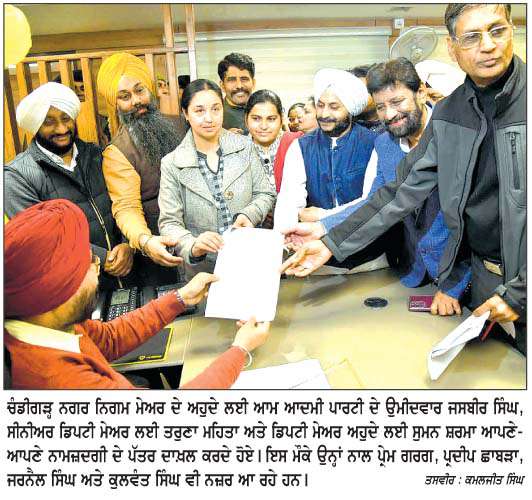 ਚੰਡੀਗੜ੍ਹ ਨਗਰ ਨਿਗਮ ਮੇਅਰ ਦੇ ਅਹੁਦੇ ਲਈ ਆਮ ਆਦਮੀ ਪਾਰਟੀ ਦੇ ਉਮੀਦਵਾਰ ਜਸਬੀਰ ਸਿੰਘ,
ਸੀਨੀਅਰ ਡਿਪਟੀ ਮੇਅਰ ਲਈ ਤਰੁਣਾ ਮਹਿਤਾ ਅਤੇ ਡਿਪਟੀ ਮੇਅਰ ਅਹੁਦੇ ਲਈ ਸੁਮਨ ਸ਼ਰਮਾ ਆਪਣੇ-
ਆਪਣੇ ਨਾਮਜ਼ਦਗੀ ਦੇ ਪੱਤਰ ਦਾਖ਼ਲ ਕਰਦੇ ਹੋਏ। ਇਸ ਮੌਕੇ ਉਨ੍ਹਾਂ ਨਾਲ ਪ੍ਰੇਮ ਗਰਗ, ਪ੍ਰਦੀਪ ਛਾਬੜਾ,
ਜਰਨੈਲ ਸਿੰਘ ਅਤੇ ਕੁਲਵੰਤ ਸਿੰਘ ਵੀ ਨਜ਼ਰ ਆ ਰਹੇ ਹਨ। ਤਸਵੀਰ : ਕਮਲਜੀਤ ਸਿੰਘ